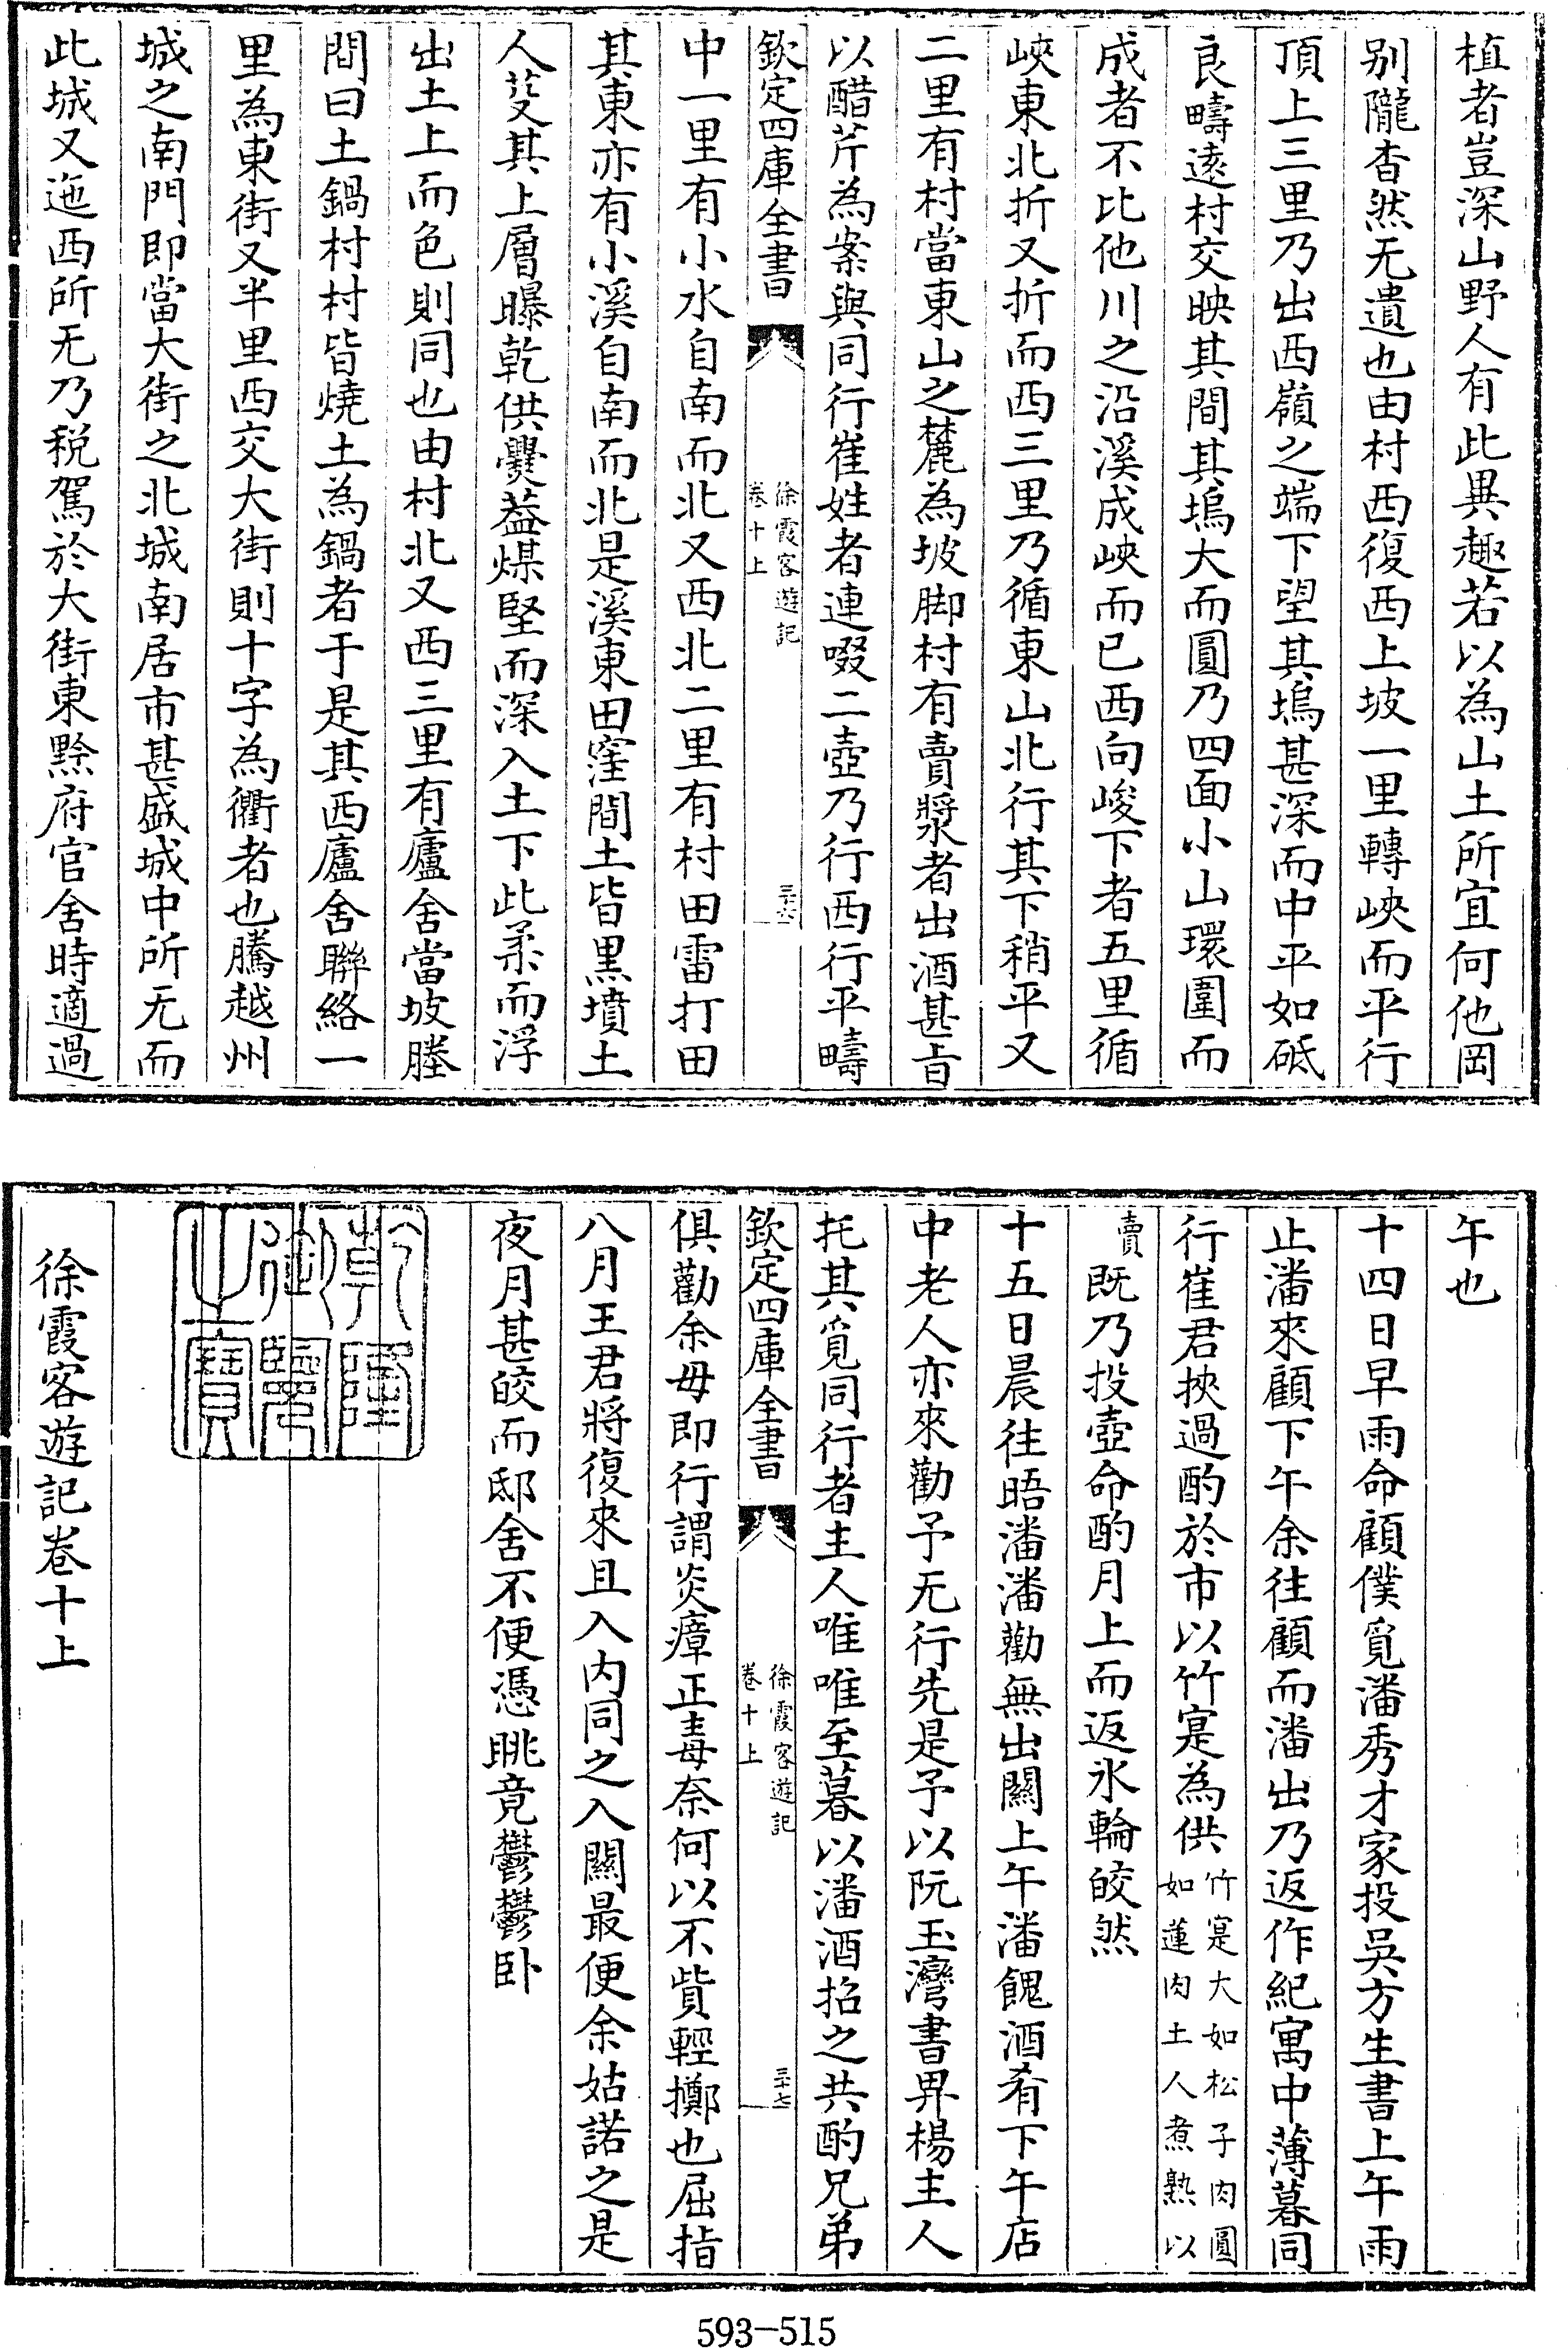 植者豈深山野人有此異趣若以為山土所宜何他岡
别隴杳然无遺也由村西復西上坡一里轉峽而平行
頂上三里乃出西嶺之端下望其塢甚深而中平如砥
良疇逺村交映其間其塢大而圓乃四面小山環圍而
成者不比他川之沿溪成峽而已西向峻下者五里循
峽東北折又折而西三里乃循東山北行其下稍平又
二里有村當東山之麓為坡脚村有賣漿者出酒甚旨
以醋芹為案與同行崔姓者連啜二壺乃行西行平疇
欽定四庫全書
徐霞客遊記
卷十上
三十六
中一里有小水自南而北又西北二里有村田雷打田
其東亦有小溪自南而北是溪東田窪間土皆黑墳土
人芟其上層曝乾供爨葢煤堅而深入土下此柔而浮
出土上而色則同也由村北又西三里有廬舍當坡塍
間曰土鍋村村皆燒土為鍋者于是其西廬舍聯絡一
里為東街又半里西交大街則十字為衢者也騰越州
城之南門即當大街之北城南居市甚盛城中所无而
此城又迤西所无乃税駕於大街東黔府官舍時適過
午也
十四日早雨命顧僕覓潘秀才家投吳方生書上午雨
止潘來顧下午余往顧而潘出乃返作紀寓中薄暮同
行崔君挾過酌於市以竹寔為供
竹寔大如松子肉圓
如蓮肉土人煮熟以
賣
既乃投壺命酌月上而返氷輪皎然
十五日晨往晤潘潘勸無出關上午潘餽酒肴下午店
中老人亦來勸予无行先是予以阮玉灣書畀楊主人
托其覓同行者主人唯唯至暮以潘酒招之共酌兄弟
欽定四庫全書
徐霞客遊記
卷十上
三十七
俱勸余毋即行謂炎瘴正毒奈何以不貲輕擲也屈指
八月王君將復來且入内同之入關最便余姑諾之是
夜月甚皎而邸舍不便憑眺竟鬱鬱卧
乾隆御覽之寶
徐霞客遊記卷十上
593-515